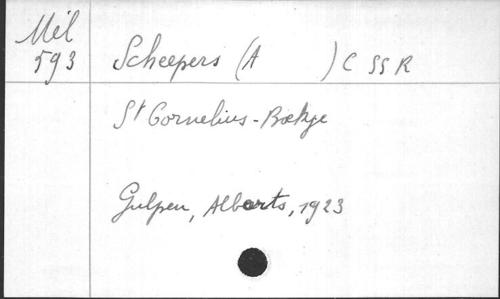 Mil
593
Scheepers (A ) C SS R
St Cornelius-Boekje
Gulpen, Alberts, 1923